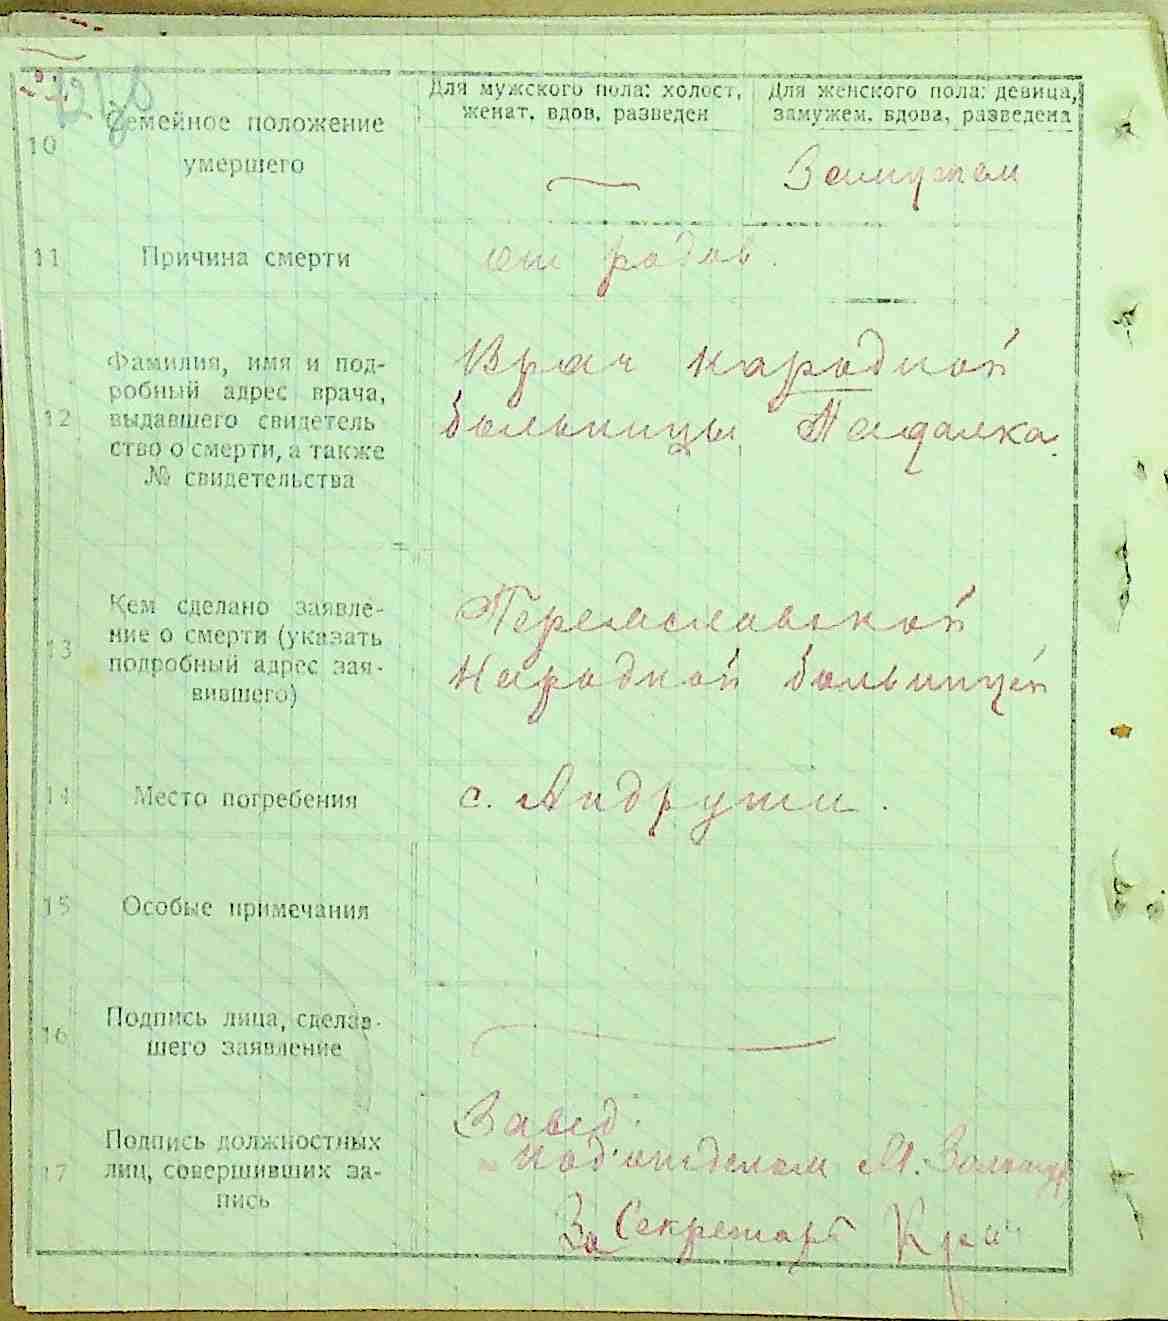 Для мужского пола: холост,
женат, вдов, разведен
Для женского пола: девица,
замужем, вдова, разведена
10
Семейное положение
умершего
Замужем
11
Причина смерти
от родов.
12
Фамилия, имя и под-
робный адрес врача,
выдавшего свидетель
ство о смерти, а также
№ свидетельства
Врач народной
больницы Падалка.
13
Кем сделано заявле-
ние о смерти (указать
подробный адрес зая-
вившего)
Переяславской
Народной больницей
14
Место погребения
с. Андруши.
15
Особые примечания
16
Подпись лица, сделав-
шего заявление
17
Подпись должностных
лиц, совершивших за-
пись
Завед.
подотделом М.
За Секретарь